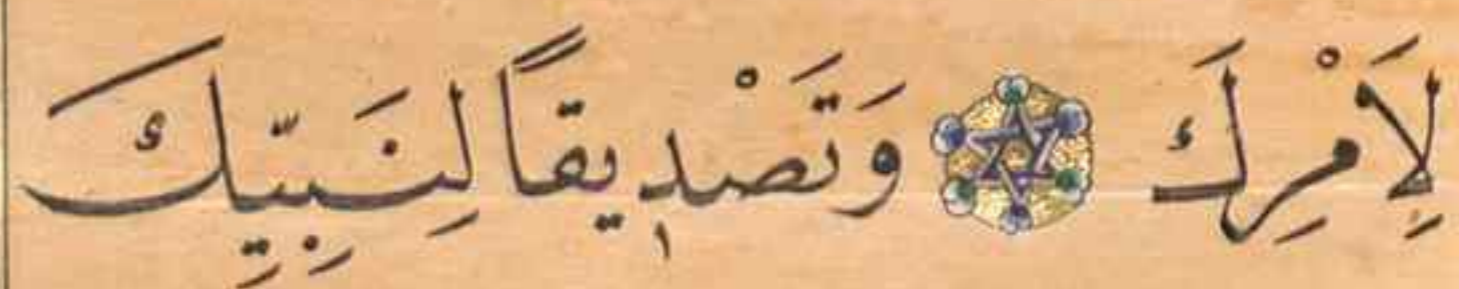 لِأَمْرِكَ وَتَصْدِيقًا لِنَبِيِّكَ